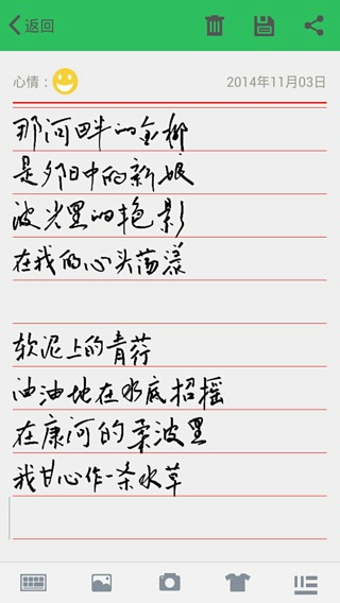 返回
心情： 2014年11月03日
那河畔的金柳
是夕阳中的新娘
波光里的艳影
在我的心头荡漾
软泥上的青荇
油油地在水底招摇
在康河的柔波里
我甘心作一条水草